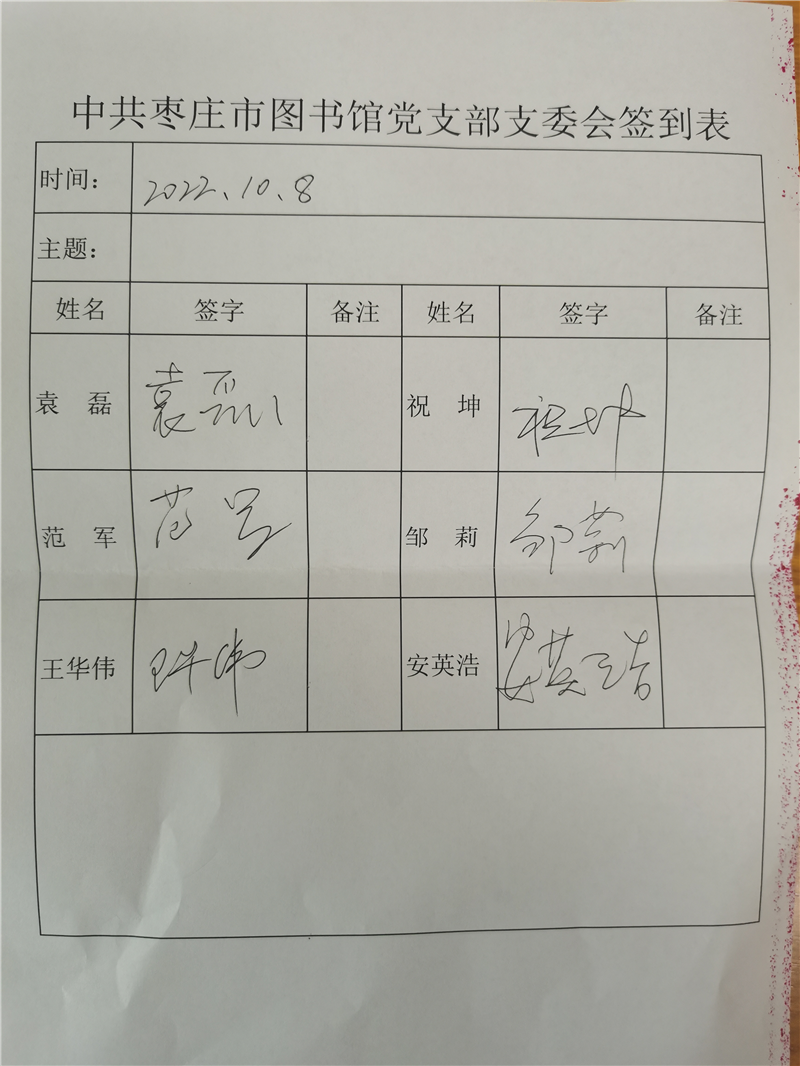 中共枣庄市图书馆党支部支委会签到表
时间： 2022.10.8
主题：
姓名 签字 备注 姓名 签字 备注
袁 磊 袁磊 祝 坤 祝坤
范 军 范军 邹 莉 邹莉
王华伟 王华伟 安英浩 安英浩